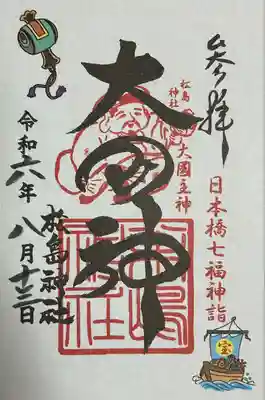 参拝
日本橋七福神詣
宝
松島神社
大國主神
大国神
松島神社
松島神社
令和六年八月十三日